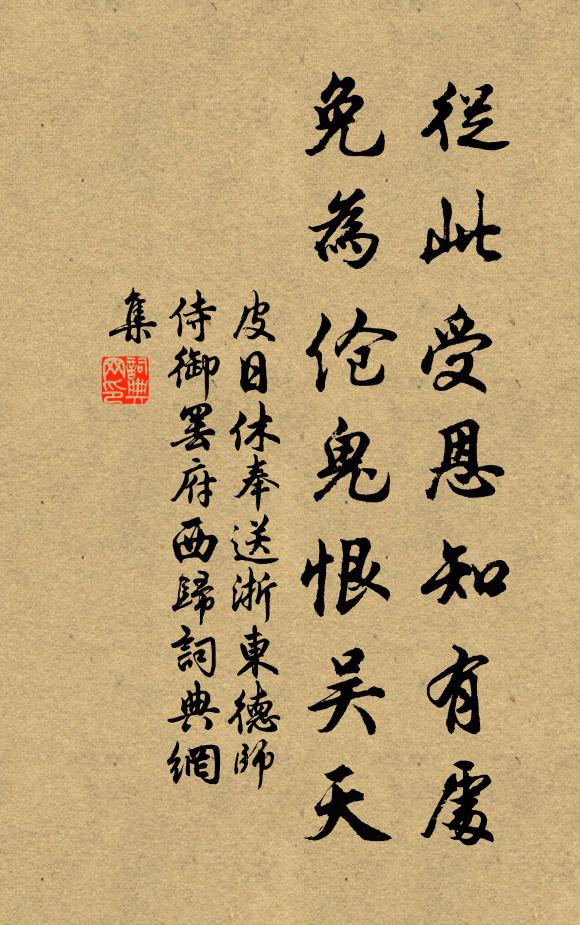 從此受恩知有處
免為伧鬼恨吴天
皮日休奉送浙東德師
侍御罢府西歸詞典網
集
詞典
网印